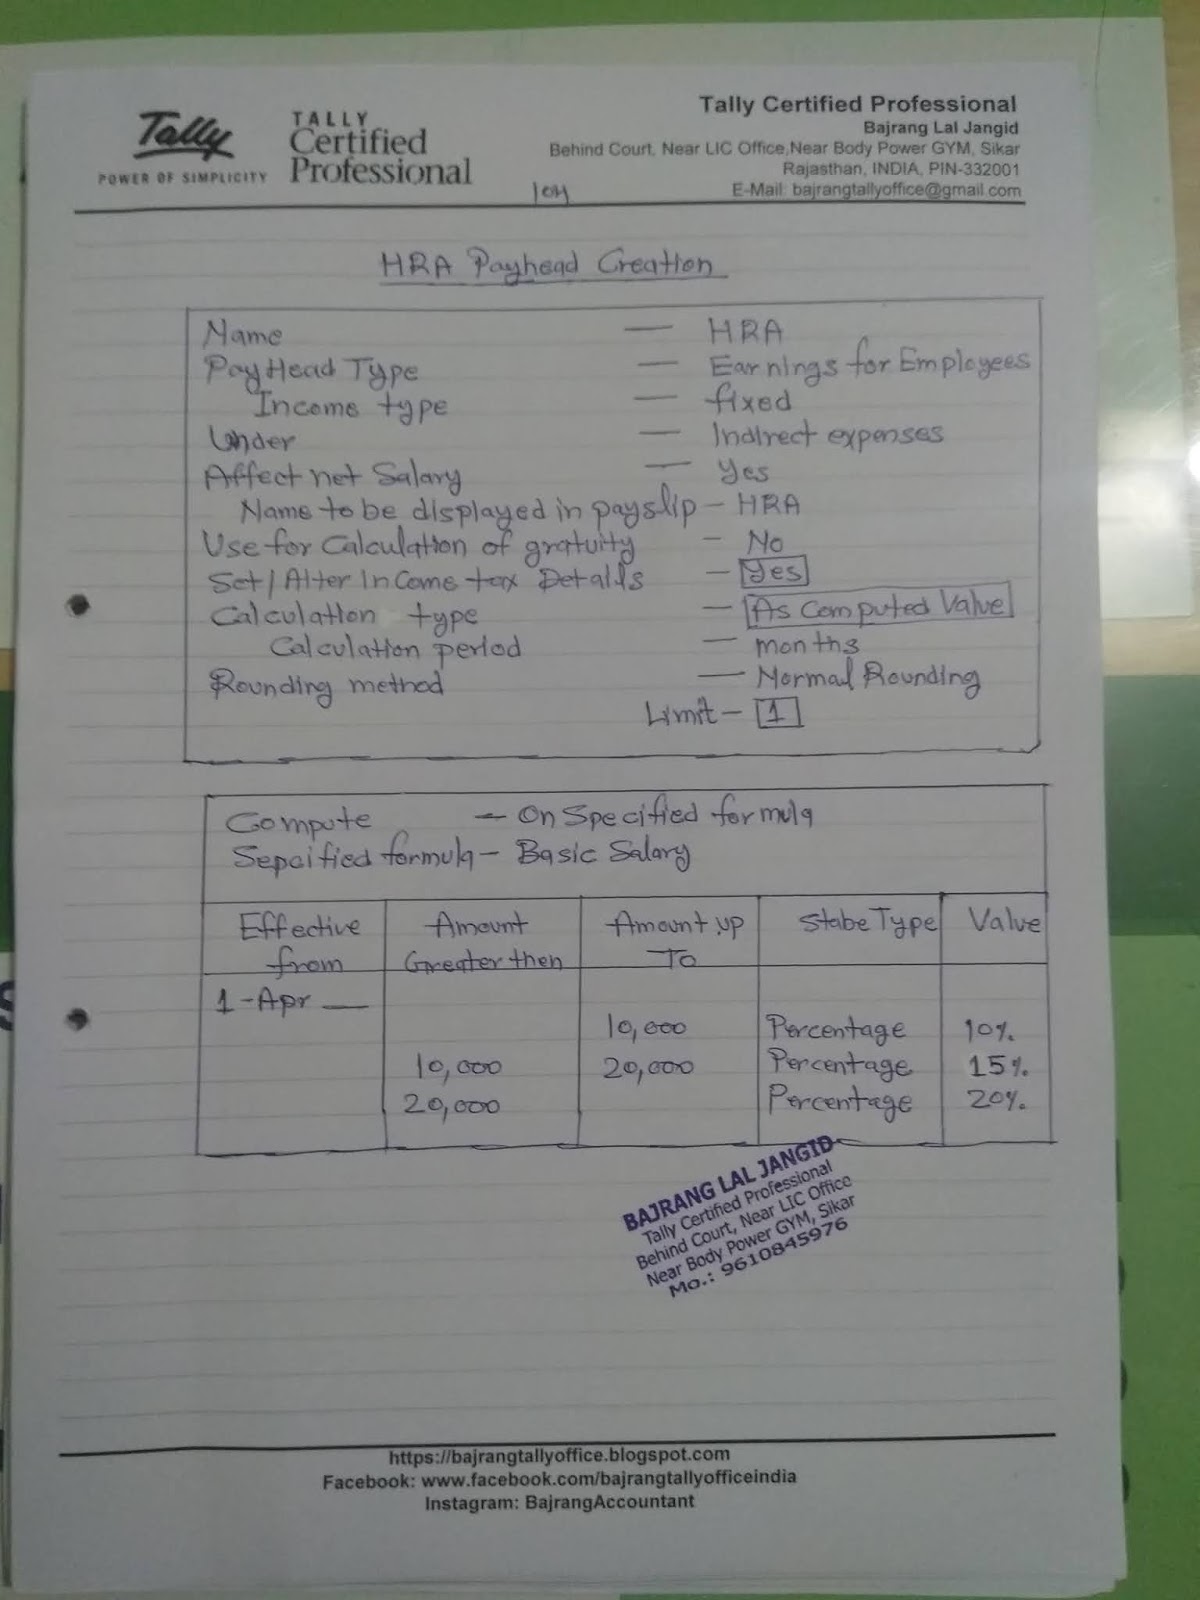 Tally
POWER OF SIMPLICITY
TALLY
Certified
Professional
Tally Certified Professional
Bajrang Lal Jangid
Behind Court, Near LIC Office,Near Body Power GYM, Sikar
Rajasthan, INDIA, PIN-332001
E-Mail: bajrangtallyoffice@gmail.com
HRA Payhead Creation
Name — HRA
PayHead Type — Earnings for Employees
Income type — fixed
Under — Indirect expenses
Affect net Salary — Yes
Name to be displayed in payslip - HRA
Use for Calculation of gratuity - No
Set/Alter Income tax Details - Yes
Calculation type - As Computed Value
Calculation period - months
Rounding method - Normal Rounding
Limit - 1
Compute - On Specified formula
Sepcified formula - Basic Salary
Effective from Amount Greater then Amount up To Slabe Type Value
1-Apr —
10,000 Percentage 10%
10,000 20,000 Percentage 15%
20,000 Percentage 20%
BAJRANG LAL JANGID
Tally Certified Professional
Behind Court, Near LIC Office
Near Body Power GYM, Sikar
Mo.: 9610845976
https://bajrangtallyoffice.blogspot.com
Facebook: www.facebook.com/bajrangtallyofficeindia
Instagram: BajrangAccountant